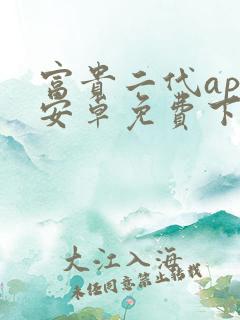 富貴二代ap
安卓免費下
大江入海
未经同意禁止转载